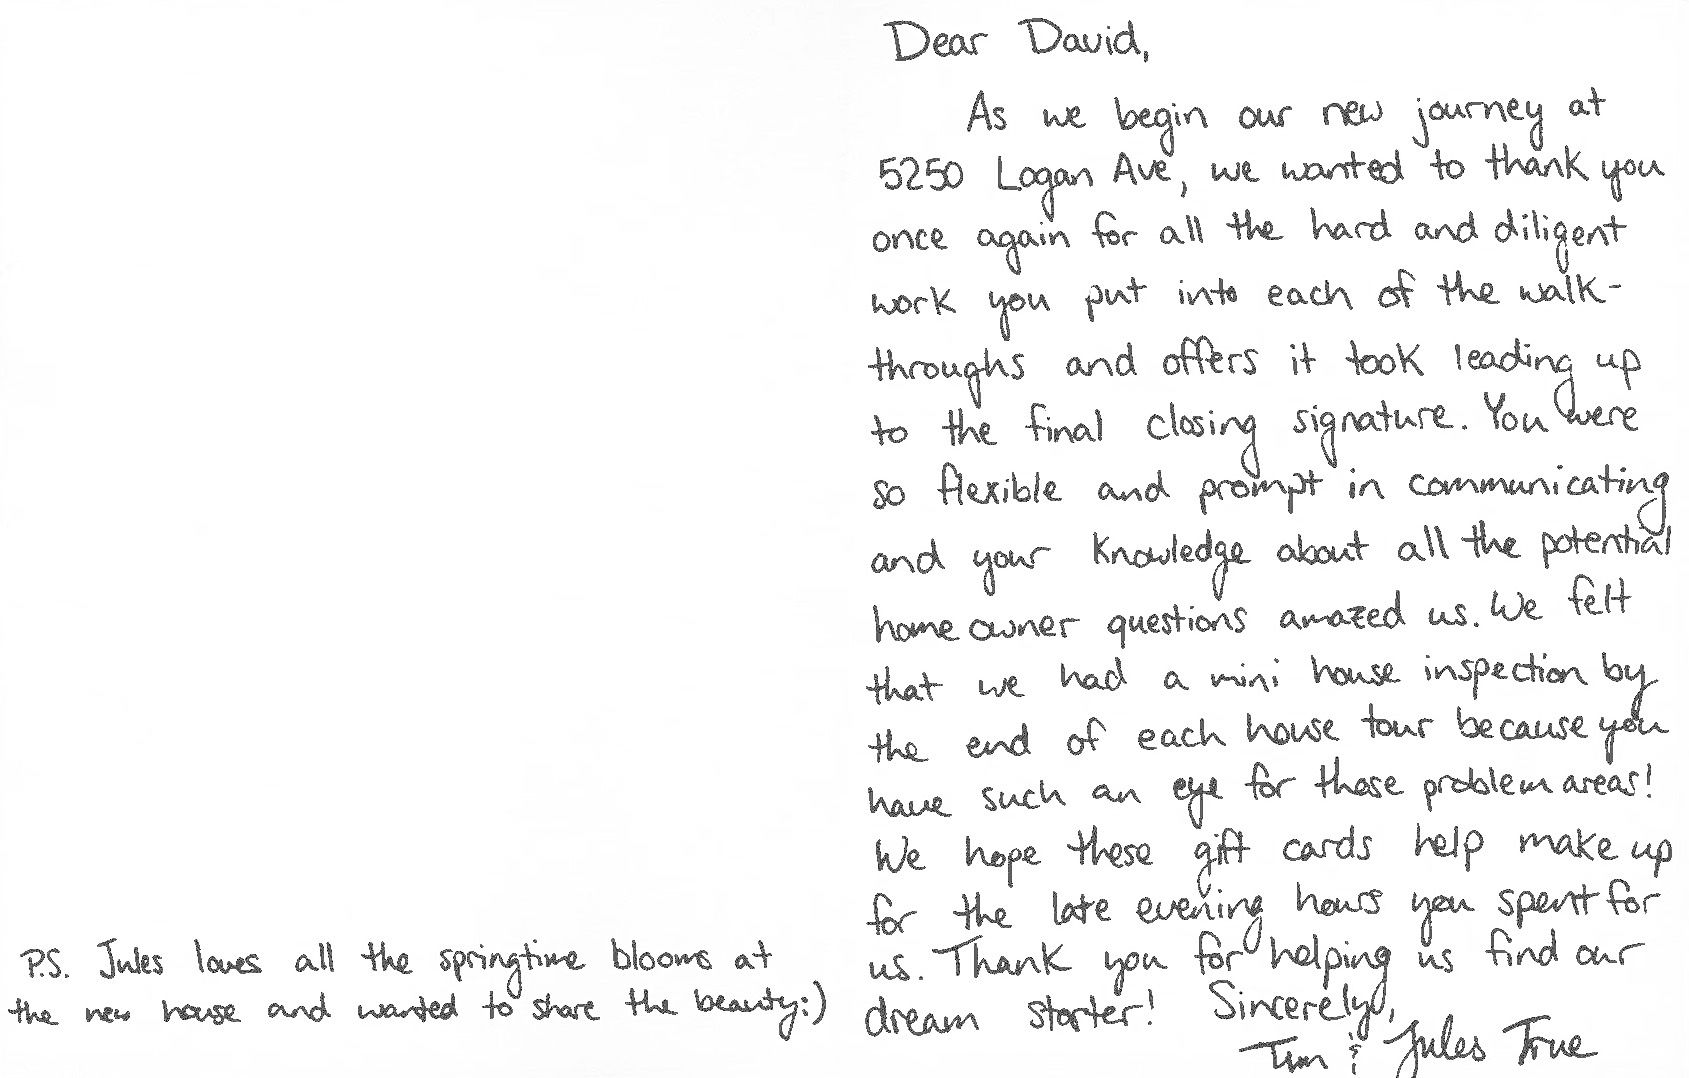 Dear David,
As we begin our new journey at
5250 Logan Ave, we wanted to thank you
once again for all the hard and diligent
work you put into each of the walk-
throughs and offers it took leading up
to the final closing signature. You were
so flexible and prompt in communicating
and your knowledge about all the potential
home owner questions amazed us. We felt
that we had a mini house inspection by
the end of each house tour because you
have such an eye for those problem areas!
We hope these gift cards help make up
for the late evening hours you spent for
us. Thank you for helping us find our
dream starter! Sincerely,
Tim & Jules True
P.S. Jules loves all the springtime blooms at
the new house and wanted to share the beauty:)